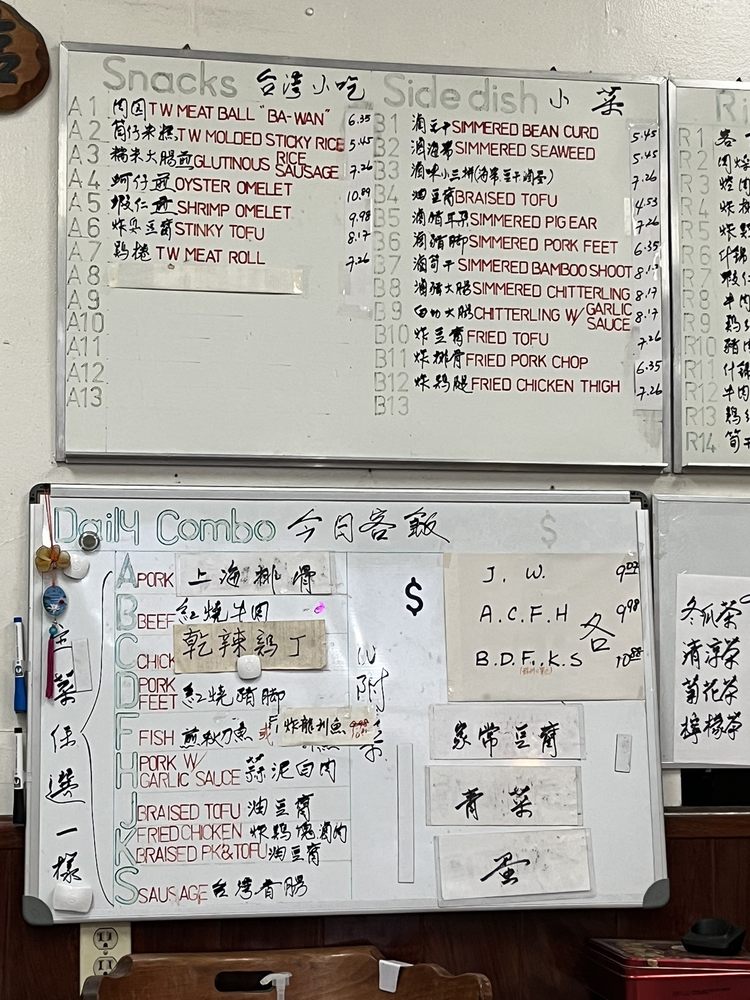 Snacks 台灣小吃
A1 肉圓 TW MEAT BALL "BA-WAN" 6.35
A2 筒仔米糕 TW MOLDED STICKY RICE 5.45
A3 糯米大腸煎 GLUTINOUS RICE SAUSAGE 7.26
A4 蚵仔煎 OYSTER OMELET 10.89
A5 蝦仁煎 SHRIMP OMELET 9.98
A6 炸臭豆腐 STINKY TOFU 8.17
A7 鷄捲 TW MEAT ROLL 7.26
A8
A9
A10
A11
A12
A13
Side dish 小菜
B1 滷豆干 SIMMERED BEAN CURD 5.45
B2 滷海帶 SIMMERED SEAWEED 5.45
B3 滷味小三拼(海帶豆干滷蛋) 7.26
B4 油豆腐 BRAISED TOFU 4.53
B5 滷豬耳朵 SIMMERED PIG EAR 7.26
B6 滷豬脚 SIMMERED PORK FEET 6.35
B7 滷筍干 SIMMERED BAMBOO SHOOT
B8 滷豬大腸 SIMMERED CHITTERLING 8.17
B9 白切大腸 CHITTERLING W/ GARLIC SAUCE 8.17
B10 炸豆腐 FRIED TOFU 7.26
B11 炸排骨 FRIED PORK CHOP 6.35
B12 炸鷄腿 FRIED CHICKEN THIGH 7.26
B13
R1
R2
R3
R4
R5
R6
R7
R8
R9
R10
R11
R12
R13
R14
Daily Combo 今日客飯 $
A PORK 上海排骨
B BEEF 紅燒牛肉
C CHICK 乾辣鷄丁
D PORK FEET 紅燒豬脚
F FISH 煎秋刀魚 或 炸龍利魚
H PORK W/ GARLIC SAUCE 蒜泥白肉
J BRAISED TOFU 油豆腐
K FRIED CHICKEN 炸鷄塊滷肉
BRAISED PK&TOFU 油豆腐
S SAUSAGE 台灣香腸
主菜任選一樣
附
$
J. W. 9.07
A.C.F.H 9.98
各
B.D.F.K.S 10.88
家常豆腐
青菜
蛋
冬瓜茶
清涼茶
菊花茶
檸檬茶